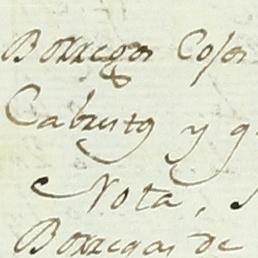 Borregos Cojos
Cabrito y
Nota,
Borregas de